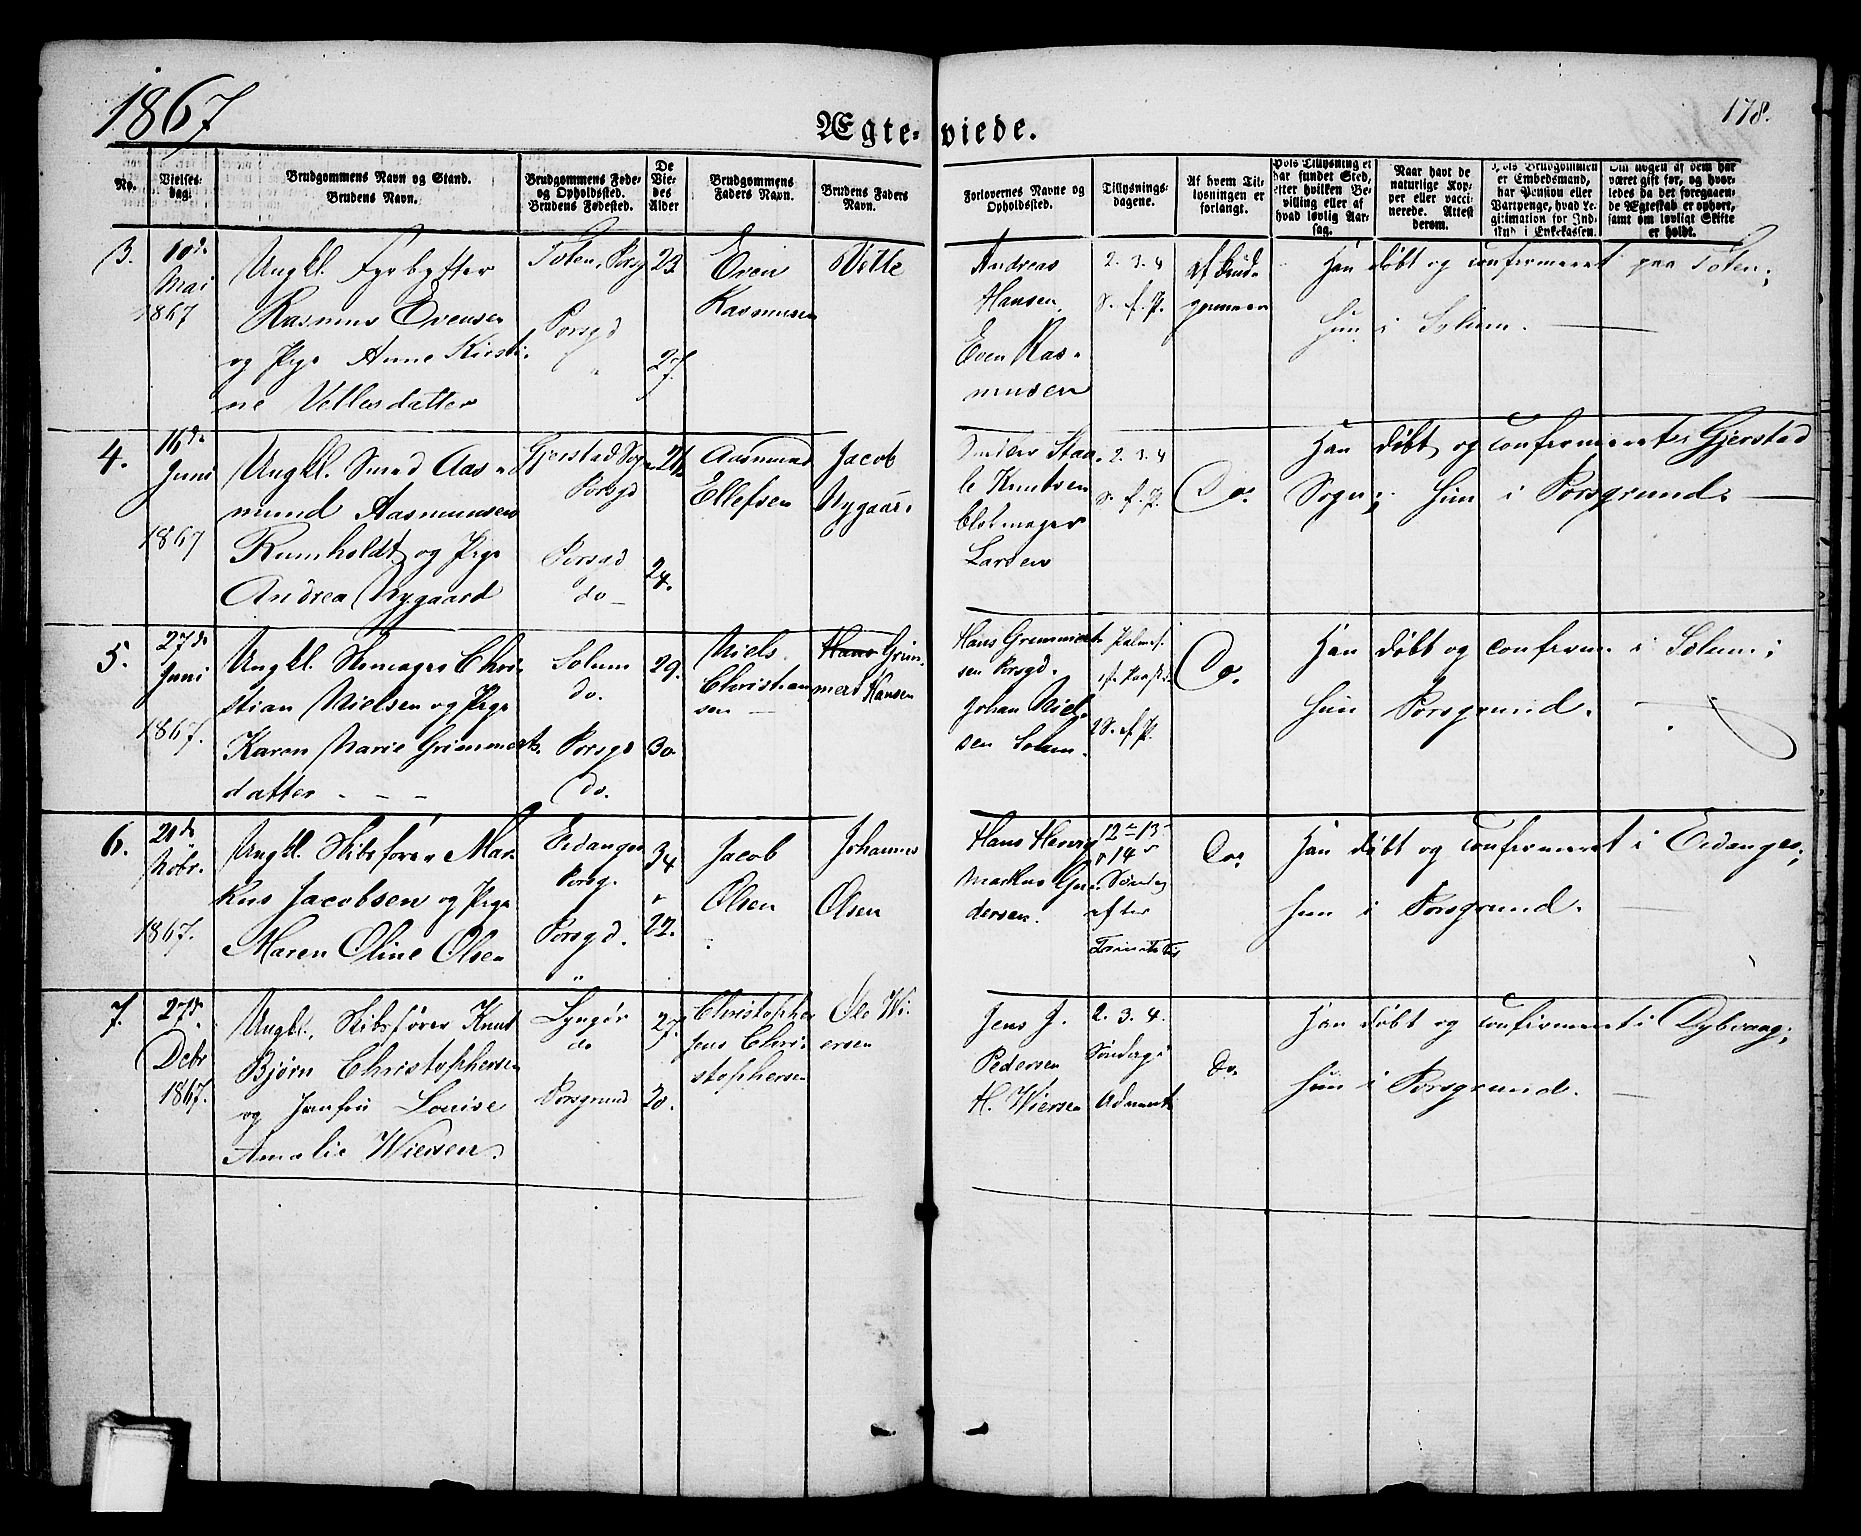 1867
Ægte-viede.
178.
No.
Vielses-
dag.
Brudgommens Navn og Stand.
Brudens Navn.
Brudgommens Føde-
og Opholdssted.
Brudens Fødested.
De
Vie-
des
Alder
Brudgommens
Faders Navn.
Brudens Faders
Navn.
Forlovernes Navne og
Opholdssted.
Tillysnings-
dagene.
Af hvem Til-
lysningen er
forlangt.
Hvis Tillysning ei
har fundet Sted,
efter hvilken Be-
villing eller af
hvad lovlig Aar-
sag.
Naar havt de
naturlige Kop-
per eller vacci-
nerede. Attest
derom.
Hvis Brudgommen
er Embedsmand,
har Pension eller
Vartpenge, hvad Le-
gitimation for Ind-
skud i Enkekassen.
Om nogen af dem har
været gift før, og hvor-
ledes da det foregaaen-
de Ægteskab er ophørt,
samt om lovligt Skifte
er holdt.
3.
10de
Mai
1867
Ungkl. Fyrbøtter
Rasmus Evensen
og Pige Anne Kirsti-
ne Vetlesdatter
Toten, Porsg
Porsgd
"
23.
27.
Even
Rasmusen
Vetle
Andreas
Hansen
Even Ras-
musen
2. 3. 4
S. e. P.
af Brud-
gommen
Han døbt og confirmeret paa Toten;
hun i Solum.
4.
16de
Juni
1867
Ungkl. Smed Aas-
mund Aasmunsen
Rumholdt og Pige
Andrea Nygaard
Gjerstad Sogn
Porsgd
Porsgd
do
24.
Aasmund
Ellefsen
Jacob
Nygaard
Knutsen
Larsen
2. 3. 4
S. e. P.
Do.
Han døbt og confirmeret i Gjerstad
Sogn; hun i Porsgrund.
5.
27de
Juni
1867.
Ungkl. Chri-
stian Nielsen og Pige
Karen Marie Grimmerts-
datter
Solum
do.
Porsgd
do.
29.
30.
Niels
Christian
sen
Hans Grim-
mert Hansen
Hans Grimmert-
sen Porsgd.
Johan Niel-
sen Solum.
2 S. e. P.
Do.
Han døbt og conferm. i Solum;
hun Porsgrund.
6.
21de
Nobr.
1867.
Ungkl. Skibsfører Mar-
kus Jacobsen og Pige
Maren Oline Olsen
Eidanger
Porsg.
Porsgd.
"
34
22.
Jacob
Olsen
Johannes
Olsen
Hans Herug
Markus Gun-
dersen.
12te 13
14
Søndag
efter
Do.
Han døbt og confirmeret i Eidanger;
hun i Porsgrund.
7.
27de
Debr
1867.
Ungkl. Skibsfører Knut
Bjørn Christophersen
og Jomfru Louise
Amalie Wiersen.
Lyngør
do
Porsgrund
27.
20.
Christopher
Jens Chri-
stophersen
Ole Wi-
ersen
Jens J.
Pedersen
H. Wiersen
2. 3. 4.
Søndag i
Advent
Do.
Han døbt og confirmeret i Dybvaag;
hun i Porsgrund.